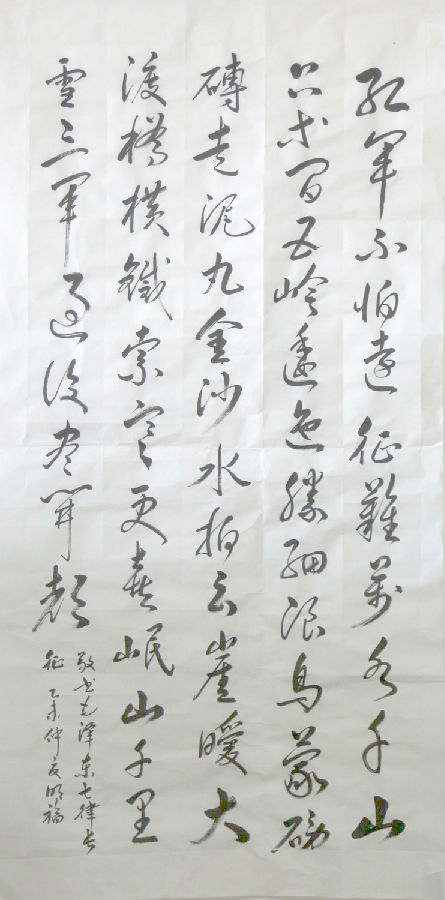 红軍不怕遠征難萬水千山
只等闲五岭逶迤腾细浪烏蒙磅
礴走泥丸金沙水拍云崖暖大
渡橋横鐵索寒更喜岷山千里
雪三軍過後盡開颜
敬书毛泽东七律长
征 乙未仲夏明福